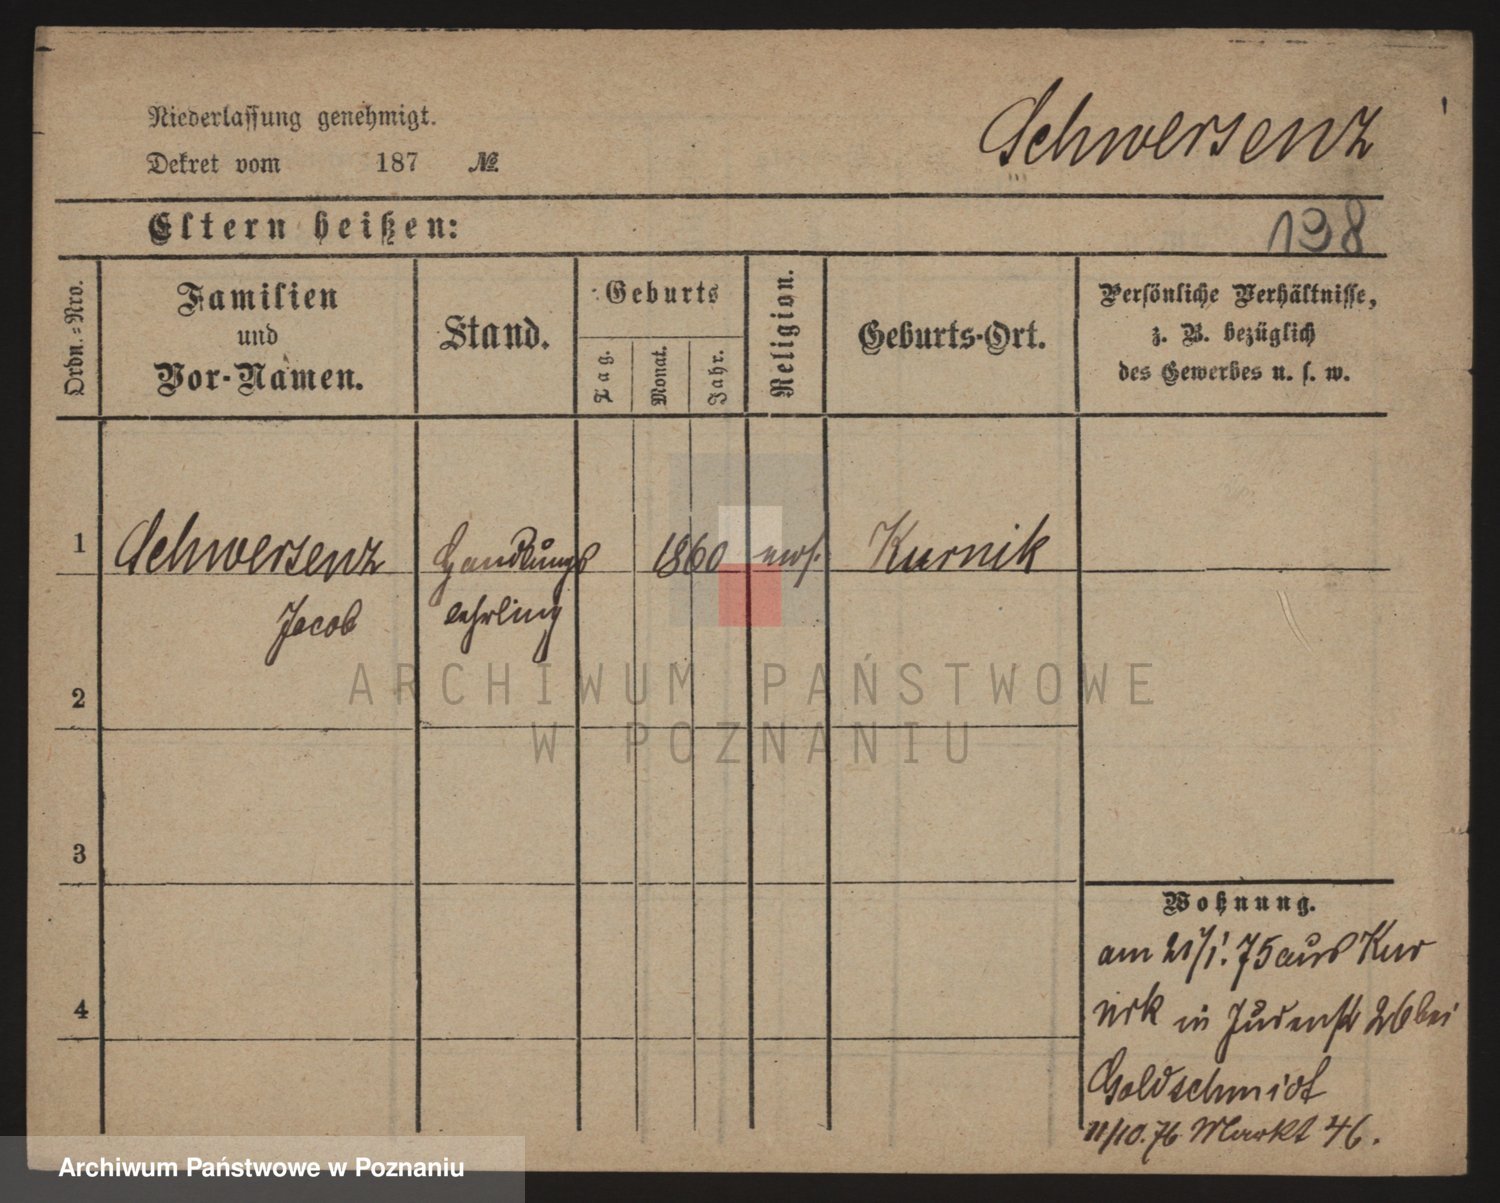 Niederlassung genehmigt.
Dekret vom 187 №
Schwersenz
Eltern heißen:
198
Ordn.=Nro.
Familien
und
Vor-Namen.
Stand.
Geburts
Tag.
Monat.
Jahr.
Religion.
Geburts-Ort.
Persönliche Verhältnisse,
z. B. bezüglich
des Gewerbes u. s. w.
1 Schwersenz Handlungs 1860 mos. Kurnik
Jacob lehrling
2
3
4
Wohnung.
am 21/1. 75 aus Kur
nik in Judenstr 26 bei
Goldschmidt
11/10. 76 Markt 46.
ARCHIWUM PAŃSTWOWE
W POZNANIU
Archiwum Państwowe w Poznaniu